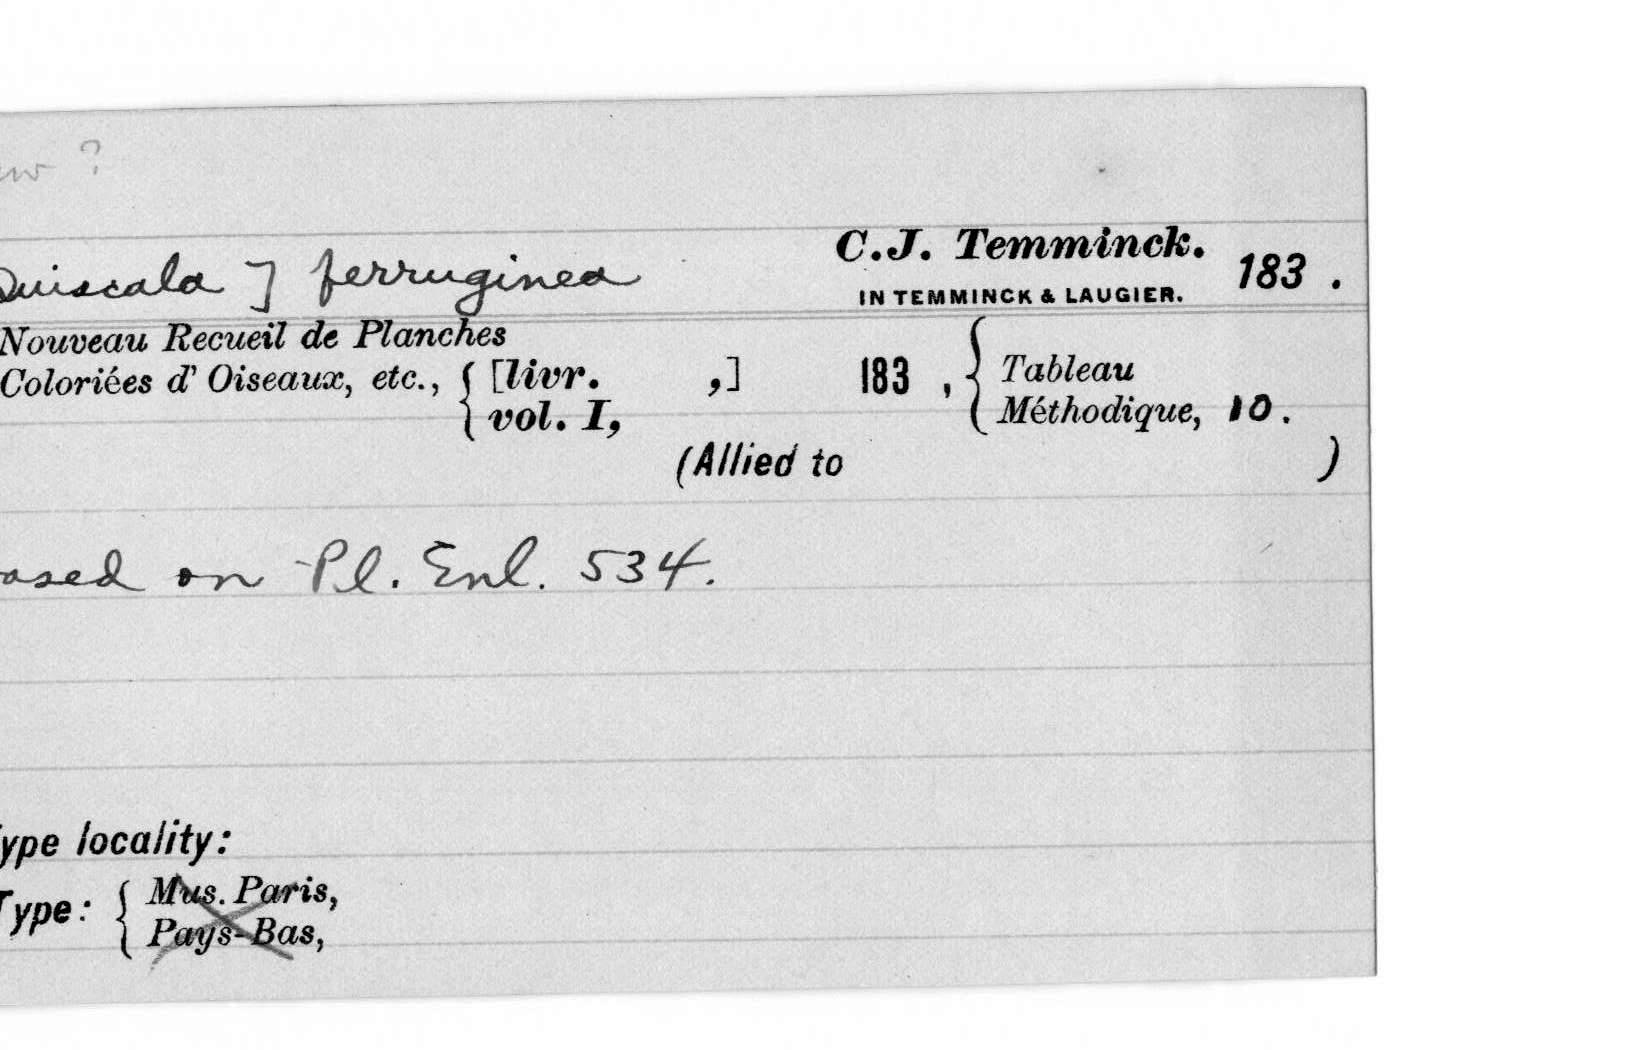 ?
Quiscala ] ferruginea C.J. Temminck. 183 .
IN TEMMINCK & LAUGIER.
Nouveau Recueil de Planches
Coloriées d' Oiseaux, etc., { [livr. ,] 183 , { Tableau
vol. I, Méthodique, 10.
(Allied to )
ased on Pl. Enl. 534.
ype locality:
Type: { Mus. Paris,
Pays-Bas,